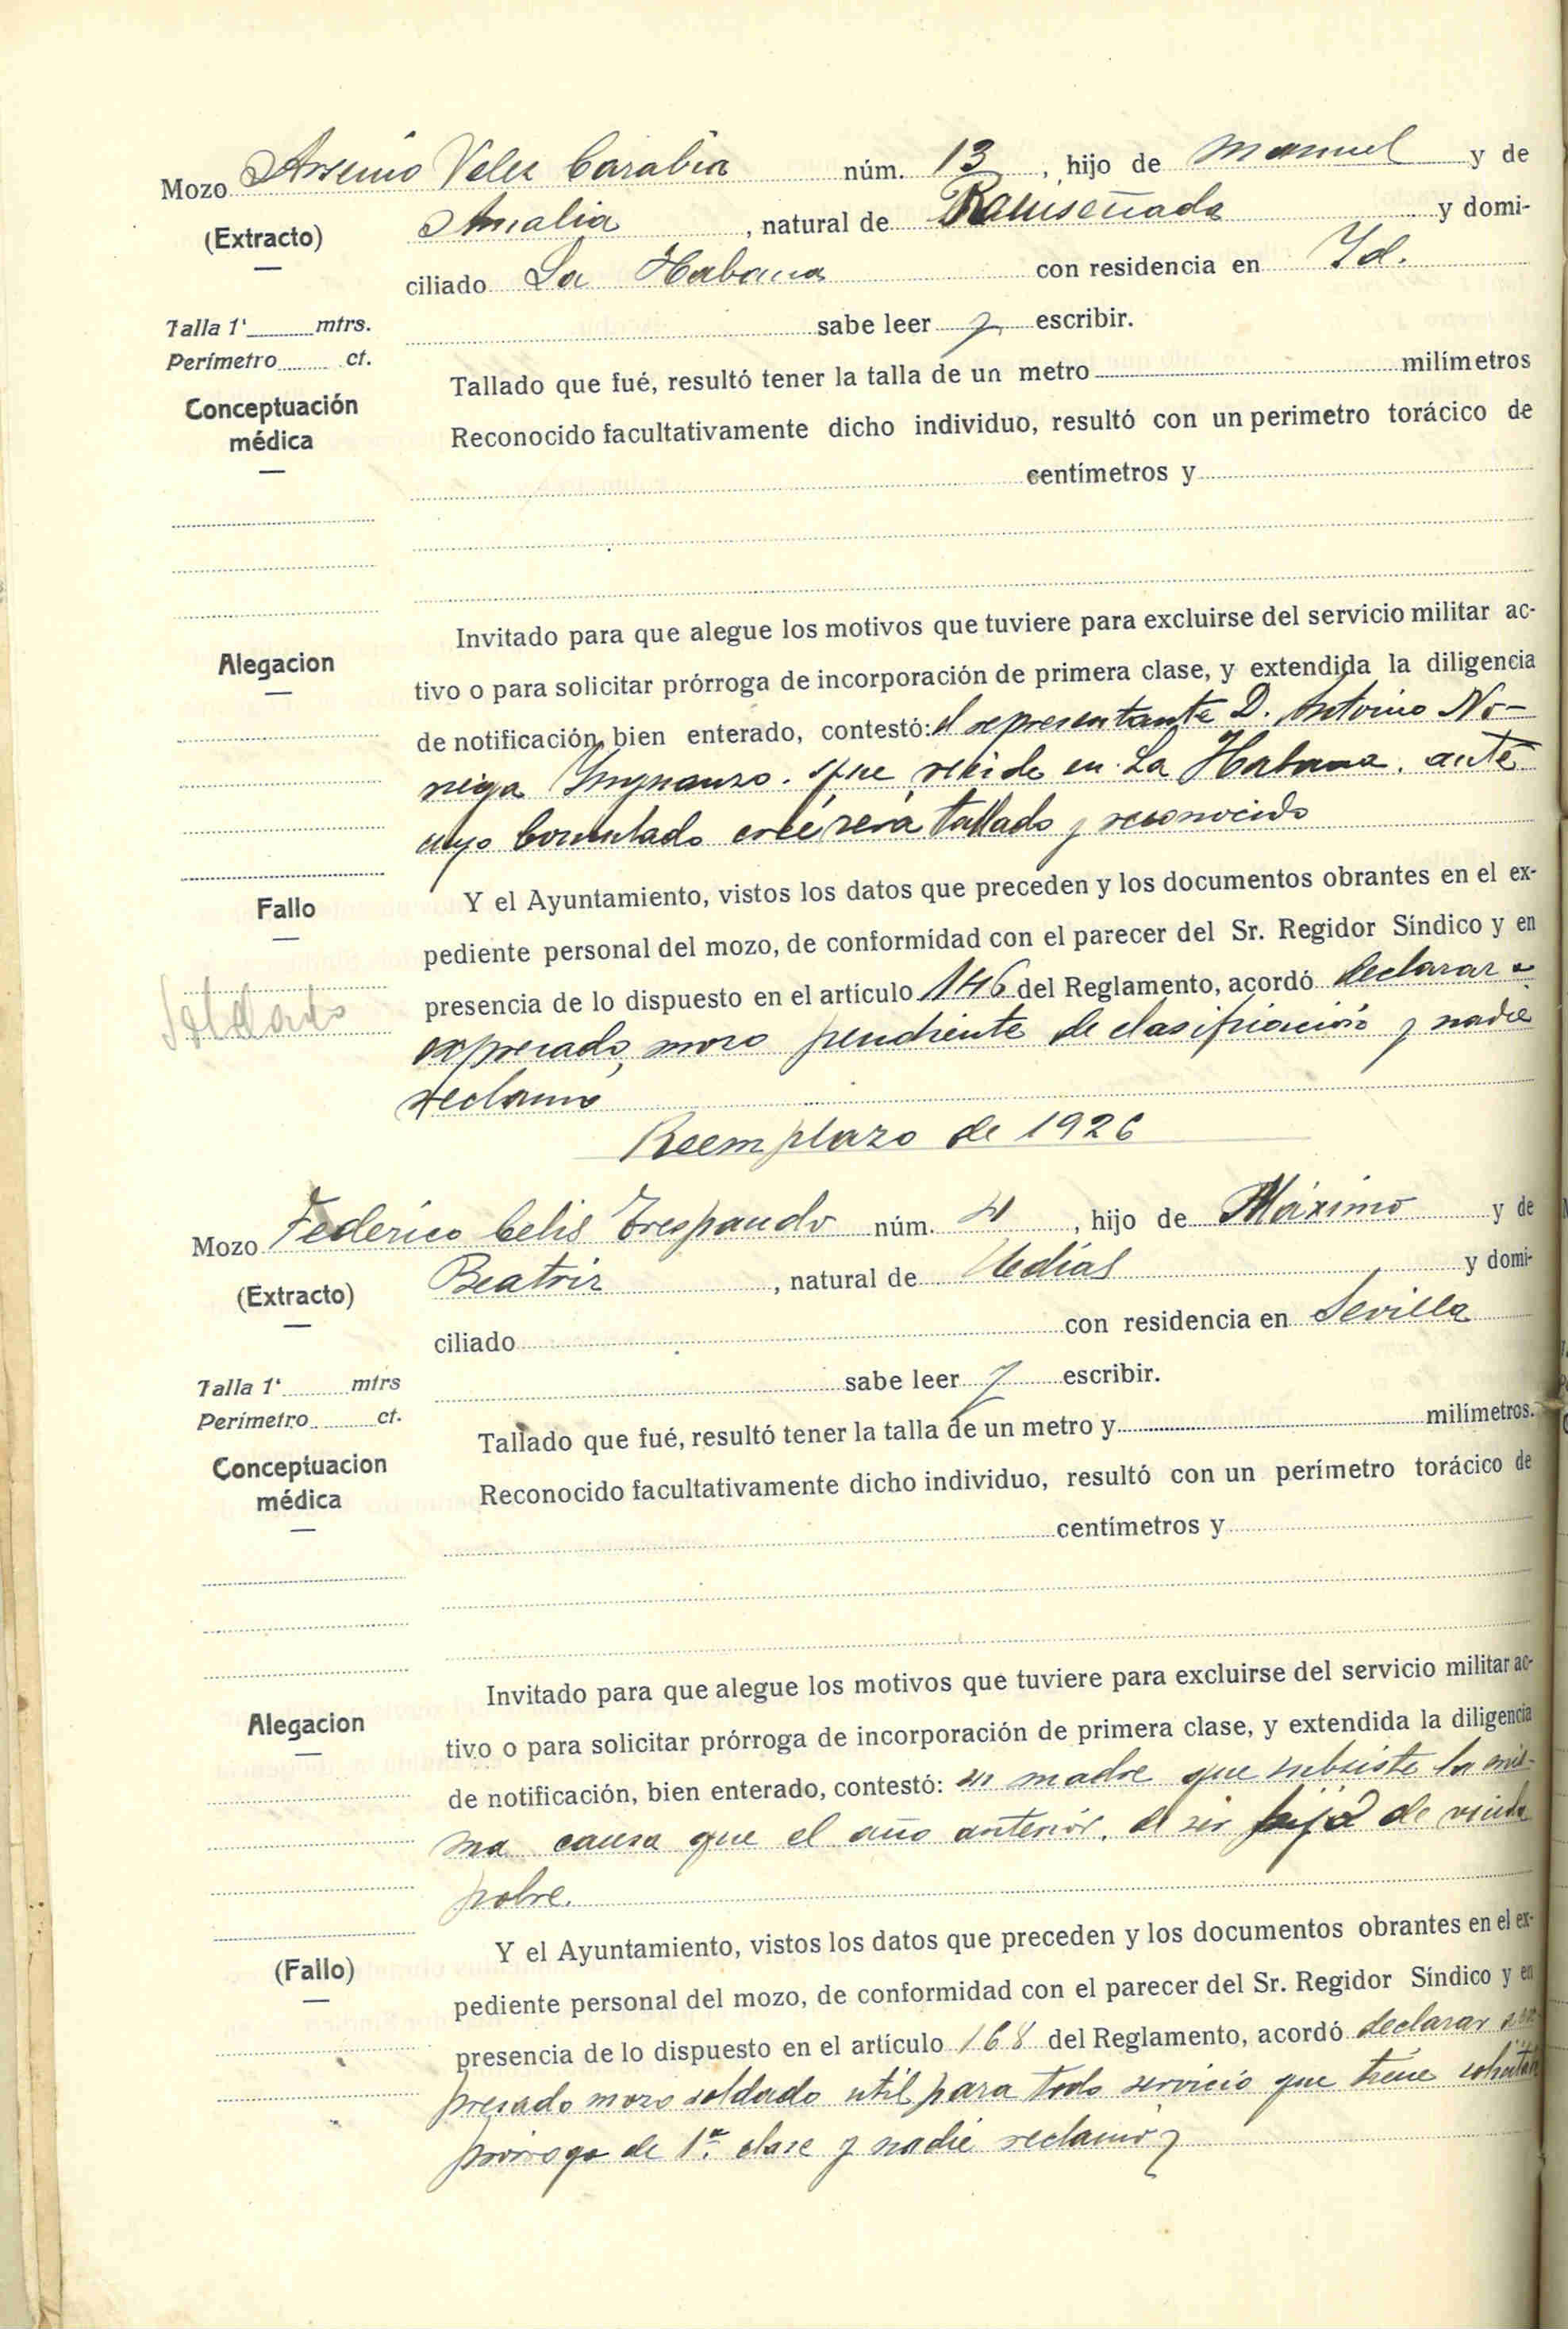 Mozo Arsenio Velez Carabia núm. 13, hijo de Manuel y de
(Extracto) Amalia, natural de Panciseñada y domi-
ciliado La Habana con residencia en Id.
Talla 1' mtrs. sabe leer y escribir.
Perímetro ct.
Tallado que fué, resultó tener la talla de un metro milímetros
Conceptuación médica
Reconocido facultativamente dicho individuo, resultó con un perimetro torácico de
centímetros y
Invitado para que alegue los motivos que tuviere para excluirse del servicio militar ac-
Alegacion
tivo o para solicitar prórroga de incorporación de primera clase, y extendida la diligencia
de notificación, bien enterado, contestó: el representante D. Antonio No-
riega que reside en La Habana, ante
cuyo Consulado cree será tallado y reconocido
Fallo
Y el Ayuntamiento, vistos los datos que preceden y los documentos obrantes en el ex-
pediente personal del mozo, de conformidad con el parecer del Sr. Regidor Síndico y en
presencia de lo dispuesto en el artículo 146 del Reglamento, acordó declarar a
Soldado
expresado mozo pendiente de clasificación y nadie
reclamó
Reemplazo de 1926
Mozo Federico Celis Trespando núm. 4, hijo de Máximo y de
(Extracto) Beatriz, natural de Andías y domi-
ciliado con residencia en Sevilla
Talla 1' mtrs sabe leer y escribir.
Perímetro ct.
Tallado que fué, resultó tener la talla de un metro y milímetros.
Conceptuacion médica
Reconocido facultativamente dicho individuo, resultó con un perímetro torácico de
centímetros y
Invitado para que alegue los motivos que tuviere para excluirse del servicio militar ac-
Alegacion
tivo o para solicitar prórroga de incorporación de primera clase, y extendida la diligencia
de notificación, bien enterado, contestó: su madre que subsiste la mis-
ma causa que el año anterior, de ser hijo de viuda
pobre.
(Fallo)
Y el Ayuntamiento, vistos los datos que preceden y los documentos obrantes en el ex-
pediente personal del mozo, de conformidad con el parecer del Sr. Regidor Síndico y en
presencia de lo dispuesto en el artículo 168 del Reglamento, acordó declarar a ex-
presado mozo soldado util para todo servicio que tiene
prórroga de 1ª. clase y nadie reclamó